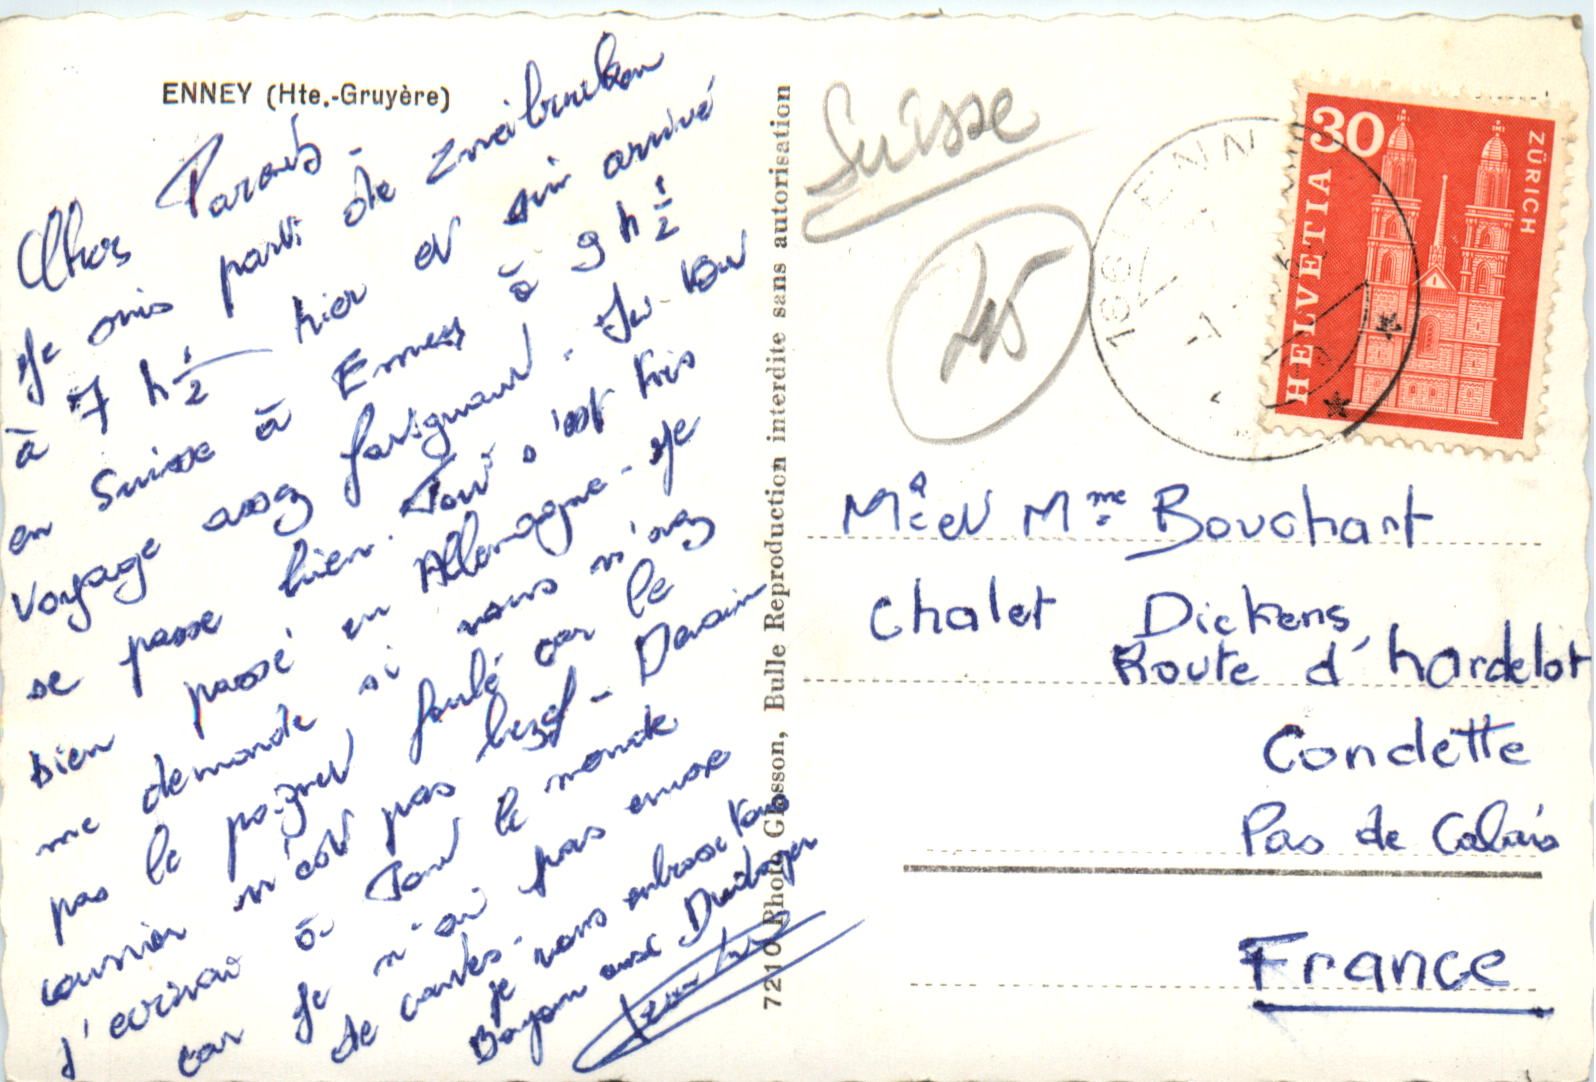 ENNEY (Hte.-Gruyère)
Chers Parents -
Je suis parti de
à 7 h 1/2 hier et suis arrivé
en Suisse à Enney à 9 h 1/2
voyage assez fatiguant. Ici tout
se passe bien. Tout s'est très
bien passé en Allemagne - Je
me demande si vous n'avez
pas le poignet foulé car le
courrier n'est pas bezef - Demain
j'ecrirai à Tout le monde
car je n'ai pas encore
de cartes.
je vous embrasse Tous
7210 Photo Glasson, Bulle Reproduction interdite sans autorisation
Suisse
45
1661 ENNEY
30
HELVETIA
ZÜRICH
Mr et Mme Bouchart
Chalet Dickens
Route d'hardelot
Condette
Pas de Calais
France